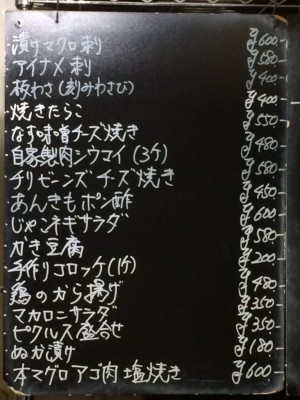 漬けマグロ刺 ¥600-
アイナメ刺 ¥580-
板わさ(刻みわさび) ¥400-
焼きたらこ ¥400-
なす味噌チーズ焼き ¥550-
自家製肉シウマイ(3ケ) ¥480-
チリビーンズチーズ焼き ¥580-
あんきもポン酢 ¥450-
じゃこネギサラダ ¥600-
かき豆腐 ¥580-
手作りコロッケ(1ケ) ¥200-
鶏のから揚げ ¥480-
マカロニサラダ ¥350-
ピクルス盛合せ ¥350-
ぬか漬け ¥180-
本マグロアゴ肉塩焼き ¥600-